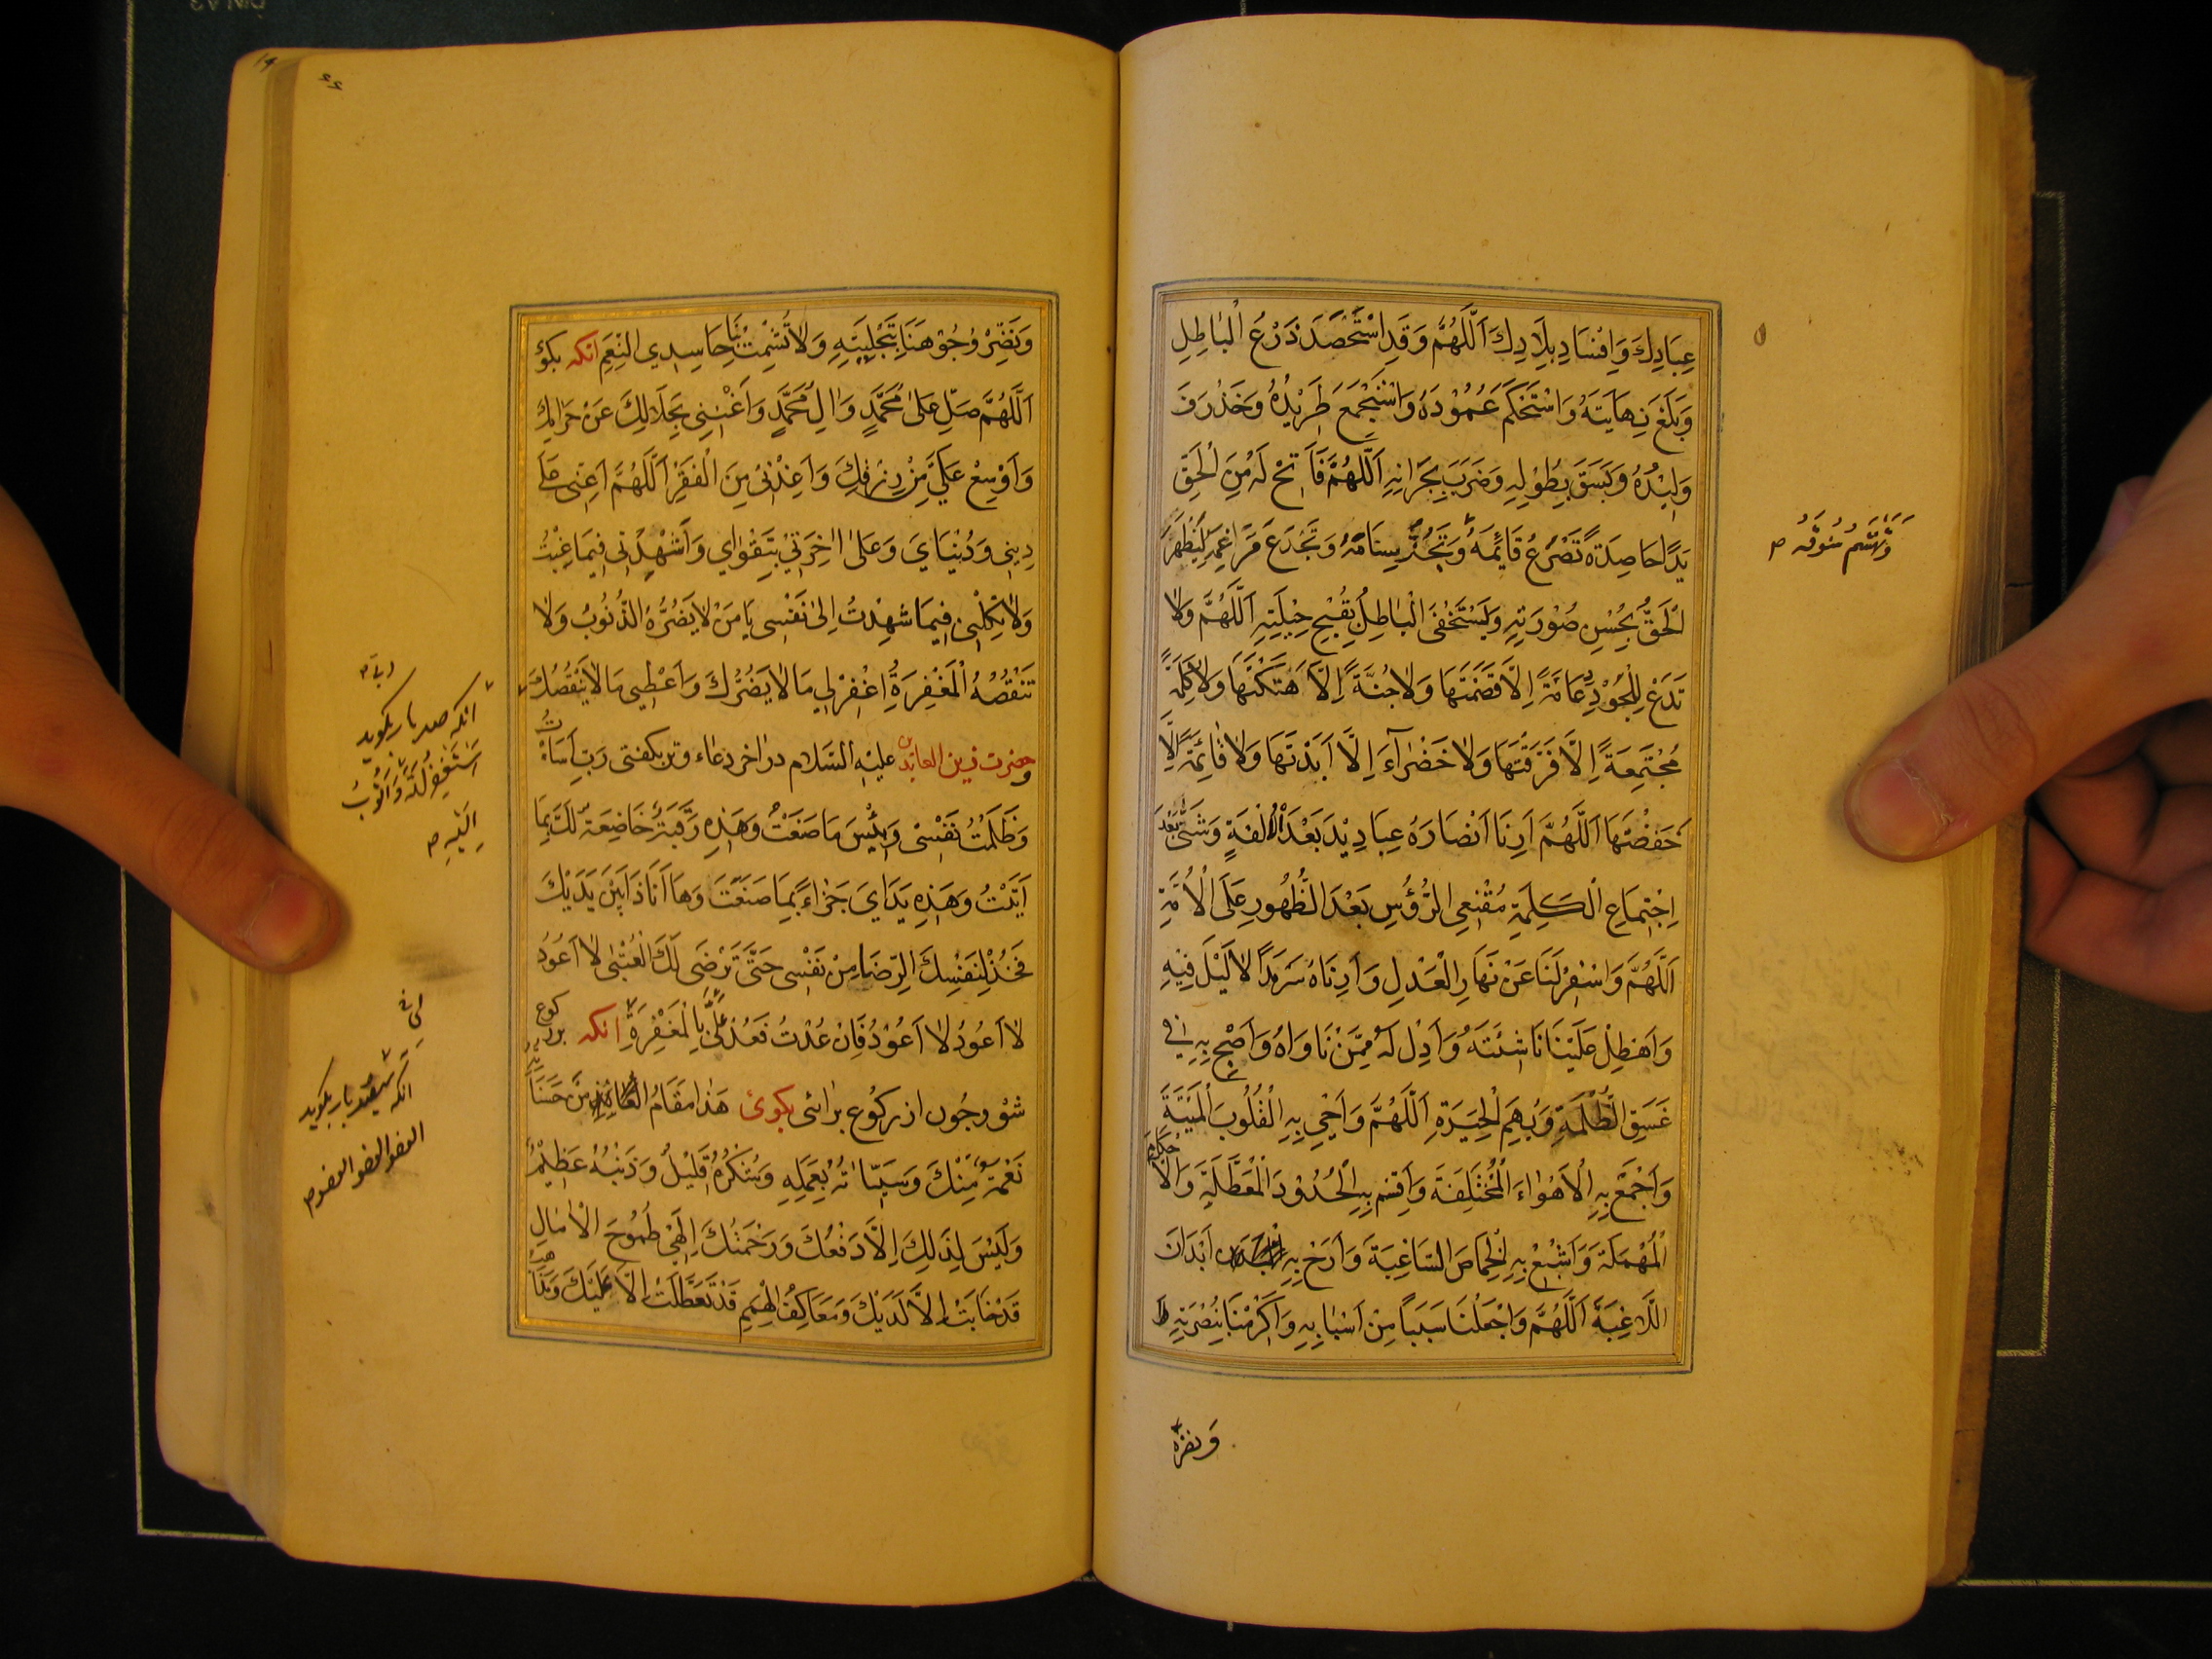 عِبَادِكَ وَاِفْسَادِ بِلَادِكَ اَللّٰهُمَّ وَقَدِ اسْتَحْصَدَ زَرْعُ الْبَاطِلِ
وَبَلَغَ نِهَايَتَهُ وَاسْتَحْكَمَ عَمُوْدُهُ وَاسْتَجْمَعَ طَرِيْدُهُ وَخَذْرَفَ
وَلِيْدُهُ وَبَسَقَ بِطُوْلِهِ وَضَرَبَ بِجِرَانِهِ اَللّٰهُمَّ فَاَتِحْ لَهُ مِنَ الْحَقِّ
يَدًا حَاصِدَةً تَصْرَعُ قَايِمَهُ وَتَجُذُّ سِنَامَهُ وَتَجْدَعُ مَرَاغِمَهُ لِيَظْهَرَ
الْحَقُّ بِحُسْنِ صُوْرَتِهِ وَيَسْتَخْفِىَ الْبَاطِلُ بِقُبْحِ حِلْيَتِهِ اَللّٰهُمَّ وَلَا
تَدَعْ لِلْجَوْرِ دِعَامَةً اِلَّا قَصَمْتَهَا وَلَا جُنَّةً اِلَّا هَتَكْتَهَا وَلَا كَلِمَةً
مُجْتَمِعَةً اِلَّا فَرَّقْتَهَا وَلَا خَضْرَآءَ اِلَّا اَبَدْتَهَا وَلَا قَائِمَةً اِلَّا
خَفَضْتَهَا اَللّٰهُمَّ اَرِنَا اَنْصَارَهُ عِبَادِيْدَ بَعْدَ الْاُلْفَةِ وَشَتّٰى بَعْدَ
اِجْتِمَاعِ الْكَلِمَةِ مُقْنِعِى الرُّؤُسِ بَعْدَ الظُّهُورِ عَلَى الْاُمَّةِ
اَللّٰهُمَّ وَاسْفِرْ لَنَا عَنْ نَهَارِ الْعَدْلِ وَاَرِنَاهُ سَرْمَدًا لَا لَيْلَ فِيْهِ
وَاهْطِلْ عَلَيْنَا نَاشِئَتَهُ وَاَدِلْ لَهُ مِمَّنْ نَاوَاهُ وَاَصْبِحْ بِهِ فِي
غَسَقِ الظُّلْمَةِ وَبُهَمِ الْحِيَرَةِ اَللّٰهُمَّ وَاَحْىِ بِهِ الْقُلُوْبَ الْمَيِّتَةَ
وَاجْمَعْ بِهِ الْاَهْوَاءَ الْمُخْتَلِفَةَ وَاَقِمْ بِهِ الْحُدُوْدَ الْمُعَطَّلَةَ وَالْاَحْكَامَ
الْمُهْمَلَةَ وَاَشْبِعْ بِهِ الْخِمَاصَ السَّاغِبَةَ وَاَرِحْ بِهِ اَبْدَانَ
اللَّاغِبَةَ اَللّٰهُمَّ وَاجْعَلْنَا سَبَبًا مِنْ اَسْبَابِهِ وَاَكْرِمْنَا بِنُصْرَتِهِ
وَنَضِّرْ وُجُوْهَنَا بِتَجْلِيَتِهِ وَلَا تُشْمِتْ بِنَا حَاسِدِى النِّعَمِ انكه بكوئ
اَللّٰهُمَّ صَلِّ عَلٰى مُحَمَّدٍ وَاٰلِ مُحَمَّدٍ وَاَغْنِنِى بِحَلَالِكَ عَنْ حَرَامِكَ
وَاَوْسِعْ عَلَىَّ مِنْ رِزْقِكَ وَاَعِذْنِى مِنَ الْفَقْرِ اَللّٰهُمَّ اَعِنِّى عَلٰى
دِيْنِى وَدُنْيَايَ وَعَلٰى اٰخِرَتِى بِتَقْوٰاى وَاشْهَدْنِى فِيْمَا غِبْتُ
وَلَا تَكِلْنِى فِيْمَا شَهِدْتُ اِلٰى نَفْسِى يَا مَنْ لَا يَضُرُّهُ الذُّنُوْبُ وَلَا
تَنْقُصُهُ الْمَغْفِرَةُ اِغْفِرْلِى مَا لَا يَضُرُّكَ وَاَعْطِنِى مَا لَا يَنْقُصُكَ
وحضرت زين العابدين عليه السلام در اخر دعاء وتر بكفتى رَبِّ اَسَاْتُ
وَظَلَمْتُ نَفْسِى وَبِئْسَ مَا صَنَعْتُ وَهٰذِهِ رَقَبَتِى خَاضِعَةٌ لَكَ بِمَا
اَتَيْتُ وَهٰذِهِ يَدَاىَ جَزَاءً بِمَا صَنَعْتَ وَهَا اَنَا ذَا بَيْنَ يَدَيْكَ
فَخُذْ لِنَفْسِكَ الرِّضَا مِنْ نَفْسِى حَتّٰى تَرْضٰى لَكَ الْعُتْبٰى لَا اَعُوْدُ
لَا اَعُوْدُ لَا اَعُوْدُ فَاِنْ عُدْتُ فَعُدْ عَلَىَّ بِالْمَغْفِرَةِ انكه بركوع
شو وجون از ركوع برائى بكوئ هٰذَا مَقَامُ الْعَائِذِ مَنْ حَسَنَاتُهُ
نِعْمَةٌ مِنْكَ وَسَيِّاٰتُهُ بِعَمَلِهِ وَشُكْرُهُ قَلِيْلٌ وَذَنْبُهُ عَظِيْمٌ
وَلَيْسَ لِذٰلِكَ اِلَّا دَفْعُكَ وَرَحْمَتُكَ اِلٰهِى طُمُوْحَ الْاٰمَالِ
قَدْ خَابَتْ اِلَّا لَدَيْكَ وَمَعَاكِفُ الْهِمَمِ قَدْ تَعَطَّلَتْ اِلَّا عَلَيْكَ وَمَذَاهِبُ
انكه صد بار بكويد
اَسْتَغْفِرُ اللّٰهَ وَاَتُوْبُ
اِلَيْهِ
انكه سيصد بار بكويد
العفو العفو العفو